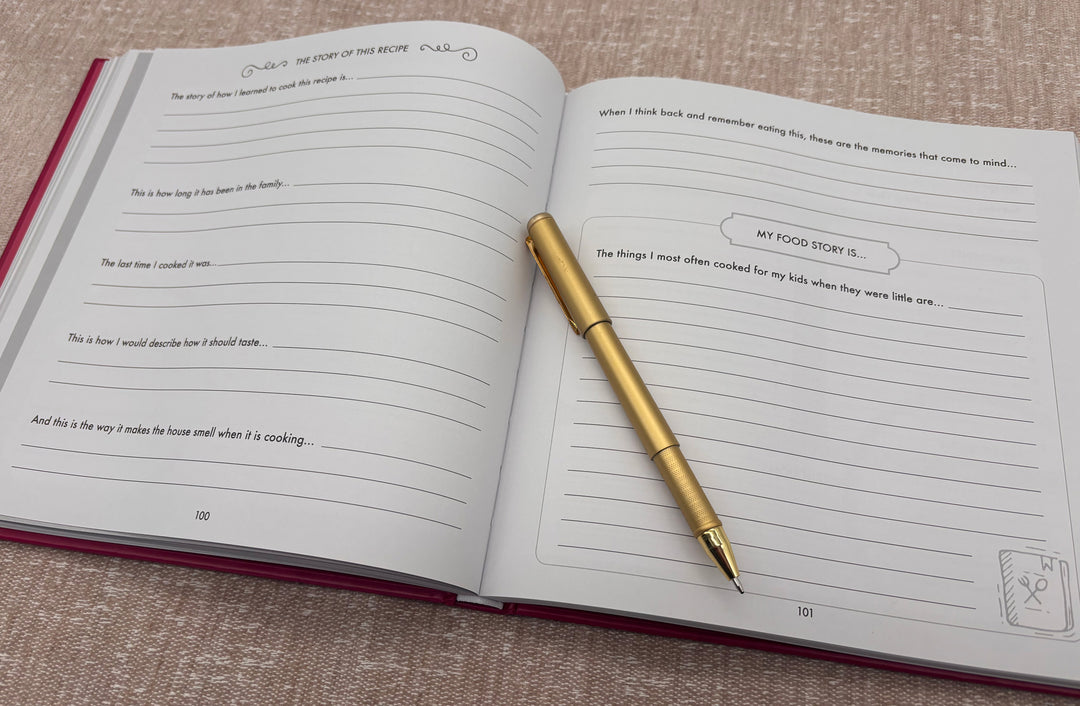 THE STORY OF THIS RECIPE
The story of how I learned to cook this recipe is...
This is how long it has been in the family...
The last time I cooked it was...
This is how I would describe how it should taste...
And this is the way it makes the house smell when it is cooking...
100
When I think back and remember eating this, these are the memories that come to mind...
MY FOOD STORY IS...
The things I most often cooked for my kids when they were little are...
101